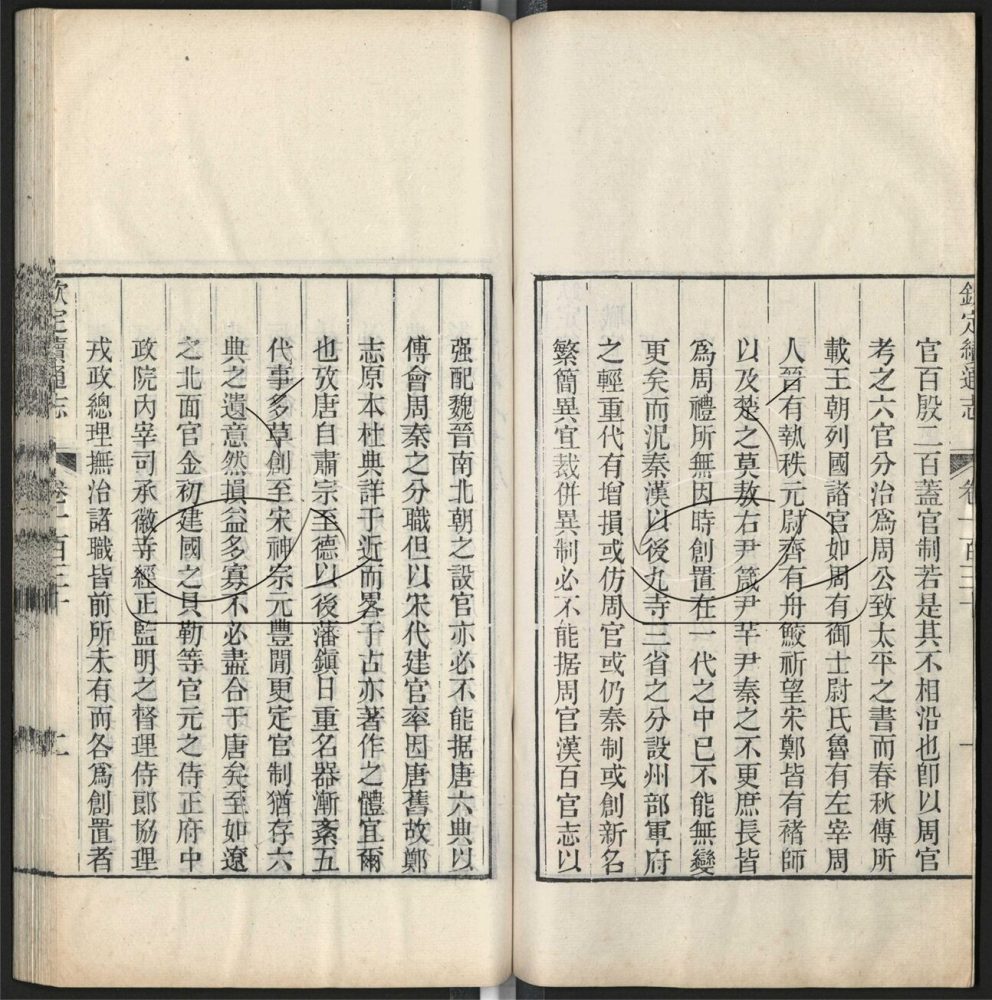 欽定續通志 卷一百三十 一
官百殷二百蓋官制若是其不相沿也卽以周官
考之六官分治爲周公致太平之書而春秋傳所
載王朝列國諸官如周有御士尉氏魯有左宰周
人晉有執秩元尉齊有舟鮫祈望宋鄭皆有褚師
以及楚之莫敖右尹箴尹芊尹秦之不更庶長皆
爲周禮所無因時創置在一代之中已不能無變
更矣而況秦漢以後九寺三省之分設州部軍府
之輕重代有增損或仿周官或仍秦制或創新名
繁簡異宜裁併異制必不能据周官漢百官志以
强配魏晉南北朝之設官亦必不能据唐六典以
傅會周秦之分職但以宋代建官率因唐舊故鄭
志原本杜典詳于近而畧于古亦著作之體宜爾
也攷唐自肅宗至德以後藩鎭日重名器漸紊五
代事多草創至宋神宗元豐閒更定官制猶存六
典之遺意然損益多寡不必盡合于唐矣至如遼
之北面官金初建國之貝勒等官元之侍正府中
政院內宰司承徽寺經正監明之督理侍郎協理
戎政總理撫治諸職皆前所未有而各爲創置者
欽定續通志 卷一百三十 二